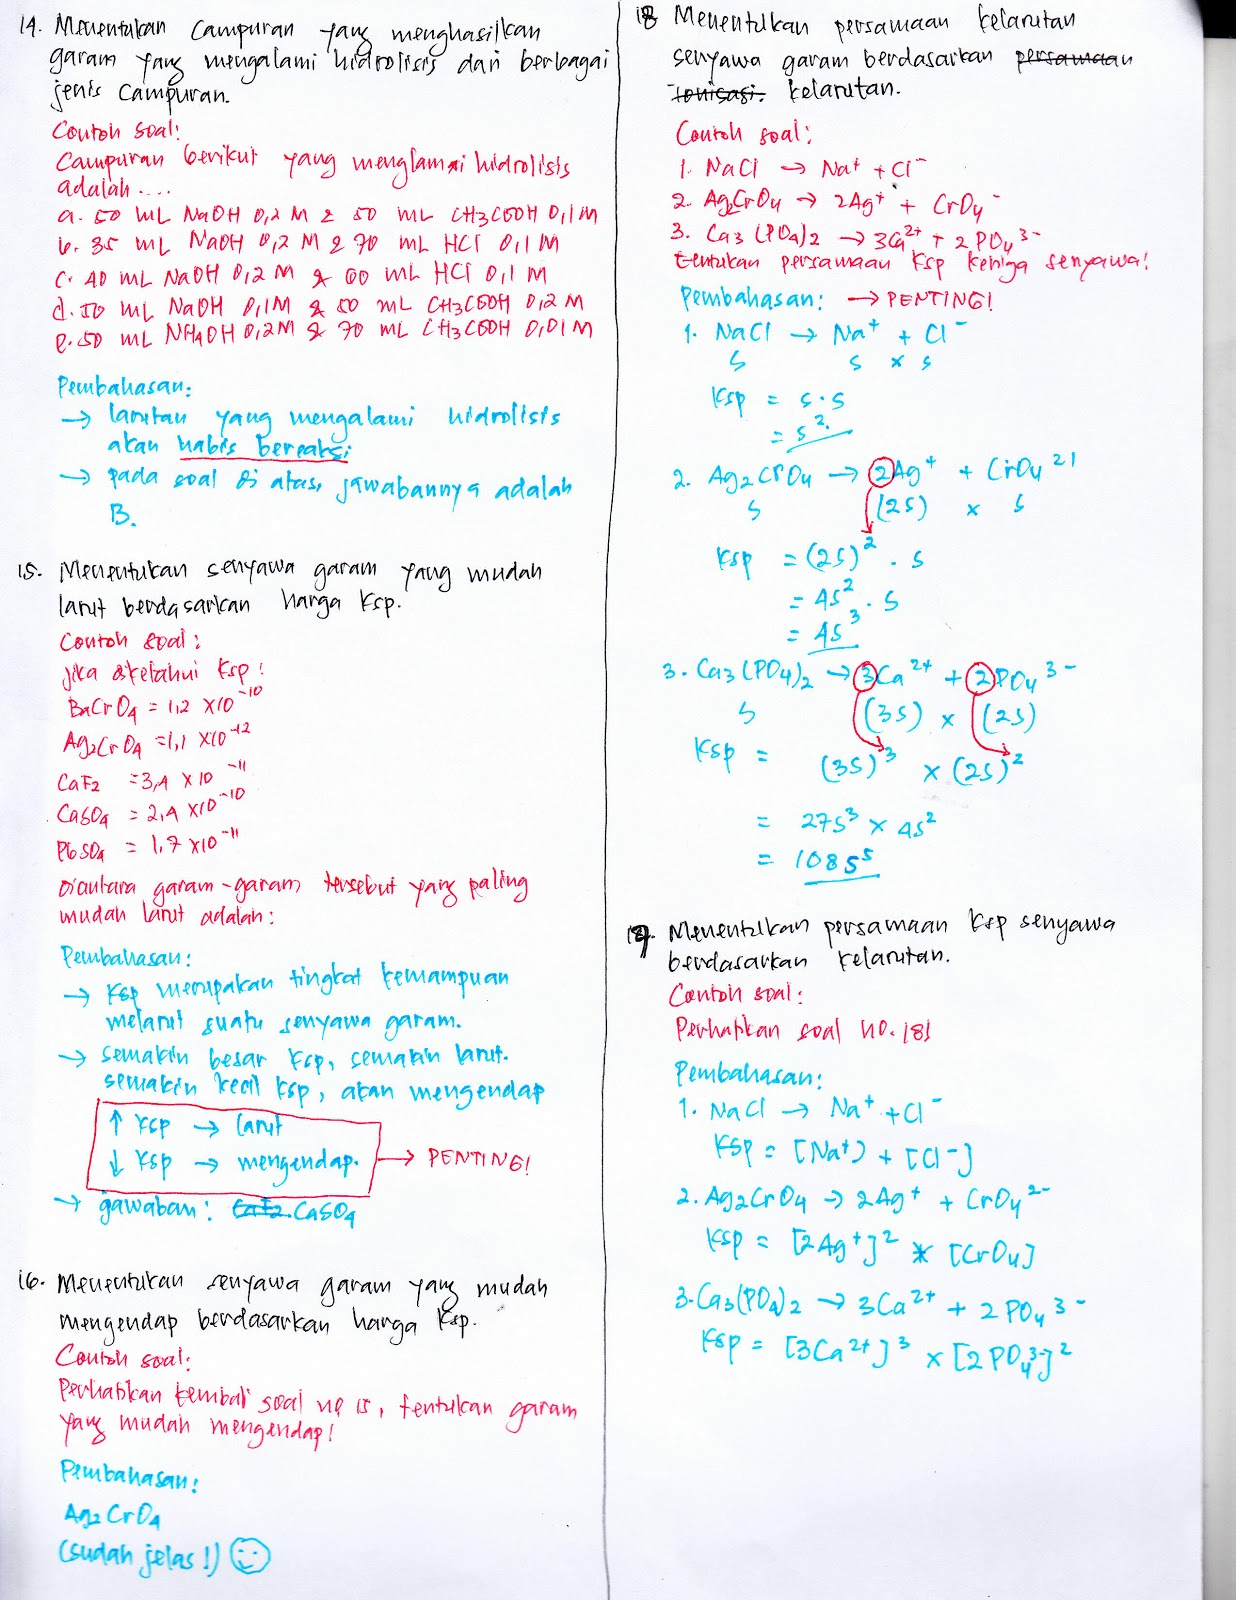 14. Menentukan Campuran yang menghasilkan
garam yang mengalami hidrolisis dari berbagai
jenis Campuran.
Contoh Soal:
Campuran berikut yang menglamai hidrolisis
adalah....
a. 50 mL NaOH 0,2 M & 50 mL CH3COOH 0,1 M
b. 35 mL NaOH 0,2 M & 70 mL HCl 0,1 M
c. 40 mL NaOH 0,2 M & 60 mL HCl 0,1 M
d. 50 mL NaOH 0,1M & 50 mL CH3COOH 0,2 M
e. 50 mL NH4OH 0,2M & 70 mL CH3COOH 0,01 M
Pembahasan:
→ larutan yang mengalami hidrolisis
akan habis bereaksi
→ pada soal di atas, jawabannya adalah
B.
15. Menentukan senyawa garam yang mudah
larut berdasarkan harga Ksp.
Contoh soal:
Jika diketahui Ksp:
BaCrO4 = 1,2 x 10⁻¹⁰
Ag2CrO4 = 1,1 x 10⁻¹²
CaF2 = 3,4 x 10⁻¹¹
CaSO4 = 2,4 x 10⁻¹⁰
PbSO4 = 1,7 x 10⁻¹¹
Diantara garam-garam tersebut yang paling
mudah larut adalah:
Pembahasan:
→ Ksp merupakan tingkat kemampuan
melarut suatu senyawa garam.
→ semakin besar Ksp, semakin larut.
semakin kecil Ksp, akan mengendap
↑ Ksp → larut
↓ Ksp → mengendap. → PENTING!
→ jawaban: CaF2. CaSO4
16. Menentukan senyawa garam yang mudah
mengendap berdasarkan harga Ksp.
Contoh soal:
Perhatikan kembali soal no 15, tentukan garam
yang mudah mengendap!
Pembahasan:
Ag2CrO4
(sudah jelas!)
18 Menentukan persamaan kelarutan
senyawa garam berdasarkan persamaan
ionisasi. kelarutan.
Contoh soal:
1. NaCl → Na⁺ + Cl⁻
2. Ag2CrO4 → 2Ag⁺ + CrO4⁻
3. Ca3(PO4)2 → 3Ca²⁺ + 2PO4³⁻
tentukan persamaan Ksp ketiga senyawa!
Pembahasan: → PENTING!
1. NaCl → Na⁺ + Cl⁻
s s x s
Ksp = s . s
= s².
2. Ag2CrO4 → 2Ag⁺ + CrO4²⁻
s (2s) x s
Ksp = (2s)² . s
= 4s² . s
= 4s³
3. Ca3(PO4)2 → 3Ca²⁺ + 2PO4³⁻
s (3s) x (2s)
Ksp = (3s)³ x (2s)²
= 27s³ x 4s²
= 108s⁵
19. Menentukan persamaan Ksp senyawa
berdasarkan kelarutan.
Contoh soal:
Perhatikan soal no. 18!
Pembahasan:
1. NaCl → Na⁺ + Cl⁻
Ksp = [Na⁺) + [Cl⁻]
2. Ag2CrO4 → 2Ag⁺ + CrO4²⁻
Ksp = [2Ag⁺]² * [CrO4]
3. Ca3(PO4)2 → 3Ca²⁺ + 2PO4³⁻
Ksp = [3Ca²⁺]³ x [2PO4³⁻]²